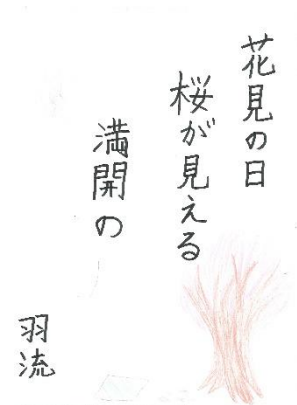 花見の日
桜が見える
満開の
羽流